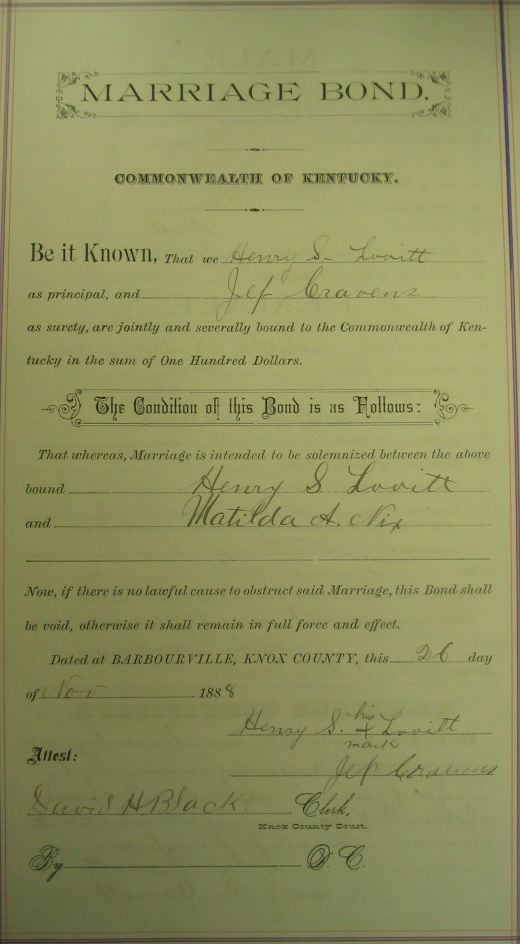 MARRIAGE BOND.
COMMONWEALTH OF KENTUCKY.
Be it Known, That we Henry S. Lovitt
as principal, and Jef Cravens
as surety, are jointly and severally bound to the Commonwealth of Ken-
tucky in the sum of One Hundred Dollars.
The Condition of this Bond is as Follows:
That whereas, Marriage is intended to be solemnized between the above
bound Henry S. Lovitt
and Matilda A. Nix
Now, if there is no lawful cause to obstruct said Marriage, this Bond shall
be void, otherwise it shall remain in full force and effect.
Dated at BARBOURVILLE, KNOX COUNTY, this 26 day
of Nov 1888
his
Henry S. + Lovitt
mark
Attest:
Jef Cravens
David H Black Clerk,
Knox County Court.
By D. C.